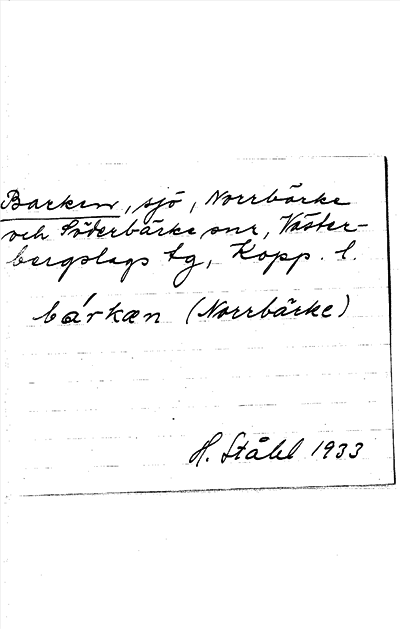 Barken, sjö, Norrbärke
och Söderbärke snr, Väster-
bergslags tg, Kopp. l.
bárkæn (Norrbärke)
H. Ståhl 1933